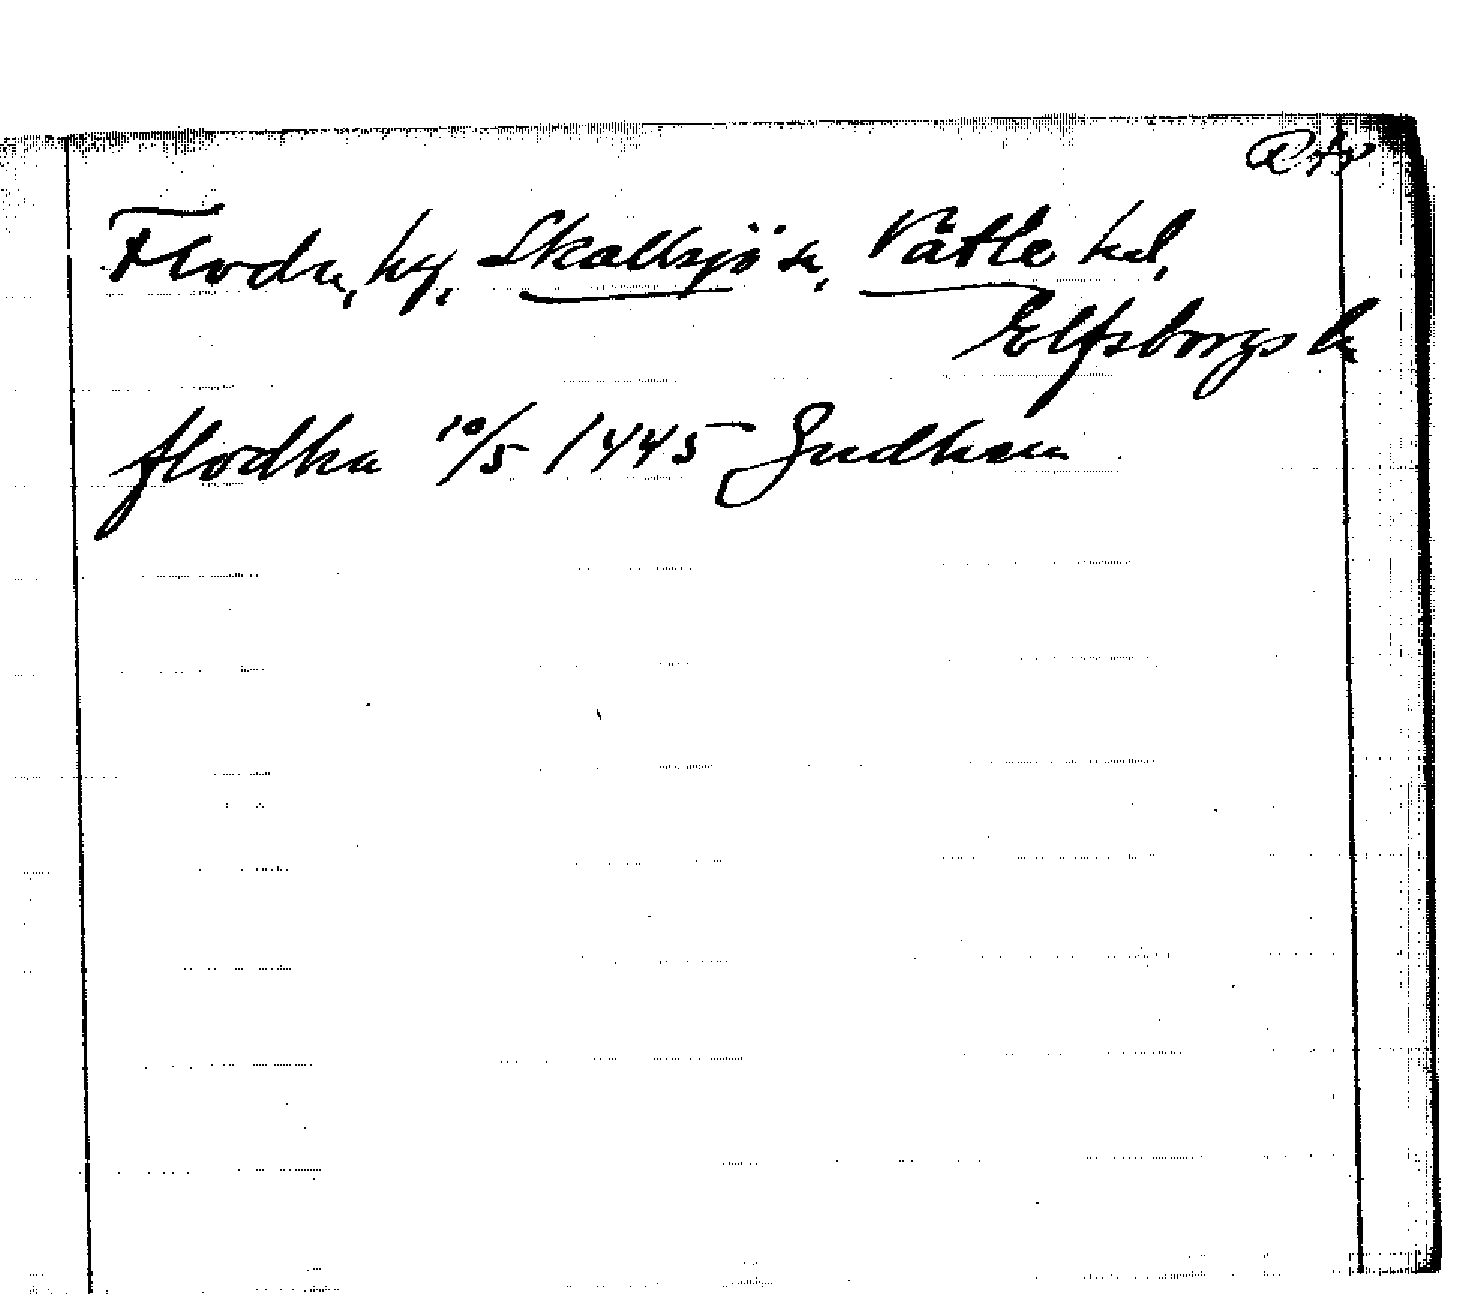 Floda, by, Skallsjö sn, Vättle hd,
Elfsborgs l.
flodha 10/5 1445 Gudhem